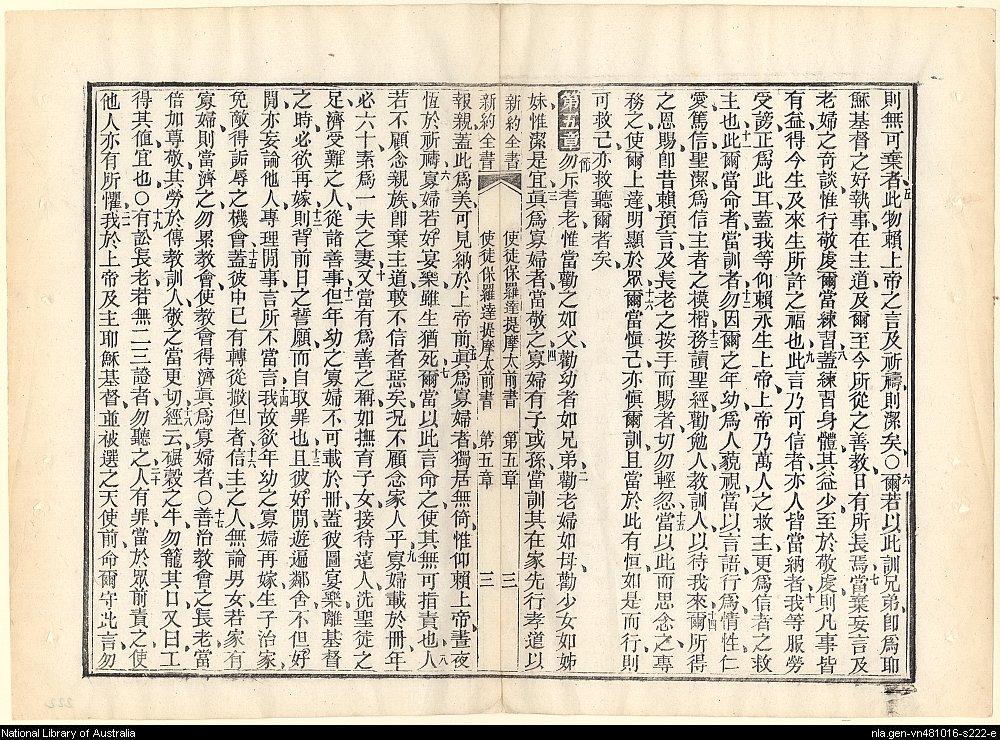 則無可棄者五此物賴上帝之言及祈禱則潔矣○六爾若以此訓兄弟卽爲耶
穌基督之好執事在主道及爾至今所從之善教日有所長焉七當棄妄言及
老婦之奇談惟行敬虔爾當練習八蓋練習身體其益少至於敬虔則凡事皆
有益得今生及來生所許之福也九此言乃可信者亦人皆當納者十我等服勞
受謗正爲此耳蓋我等仰賴永生上帝上帝乃萬人之救主更爲信者之救
主也十一此爾當命者當訓者十二勿因爾之年幼爲人藐視當以言語行爲情性仁
愛篤信聖潔爲信主者之模楷十三務讀聖經勸勉人教訓人以待我來十四爾所得
之恩賜卽昔賴預言及長老之按手而賜者切勿輕忽十五當以此而思念之專
務之使爾上達明顯於眾十六爾當愼己亦愼爾訓且當於此有恒如是而行則
可救己亦救聽爾者矣
第五章 一勿斥耆老惟當勸之如父勸幼者如兄弟二勸老婦如母勸少女如姊
妹惟潔是宜三眞爲寡婦者當敬之四寡婦有子或孫當訓其在家先行孝道以
新約全書 使徒保羅達提摩太前書 第五章 三
新約全書 使徒保羅達提摩太前書 第五章 三
報親蓋此爲美可見納於上帝前五眞爲寡婦者獨居無倚惟仰賴上帝晝夜
恆於祈禱六寡婦若好宴樂雖生猶死七爾當以此言命之使其無可指責也八人
若不顧念親族卽棄主道較不信者惡矣况不顧念家人乎九寡婦載於冊年
必六十素爲一夫之妻十又當有爲善之稱如撫育子女接待遠人洗聖徒之
足濟受難之人從諸善事十一但年幼之寡婦不可載於冊蓋彼圖宴樂離基督
之時必欲再嫁十二則背前日之誓願而自取罪也十三且彼好閒遊遍鄰舍不但好
閒亦妄論他人專理閒事言所不當言十四我故欲年幼之寡婦再嫁生子治家
免敵得詬辱之機會十五蓋彼中已有轉從撒但者十六信主之人無論男女若家有
寡婦則當濟之勿累教會使教會得濟眞爲寡婦者○十七善治教會之長老當
倍加尊敬其勞於傳教訓人敬之當更切十八經云碾穀之牛勿籠其口又曰工
得其値宜也○十九有訟長老若無二三證者勿聽之二十人有罪當於眾前責之使
他人亦有所懼二一我於上帝及主耶穌基督並被選之天使前命爾守此言勿
National Library of Australia
nla.gen-vn481016-s222-e